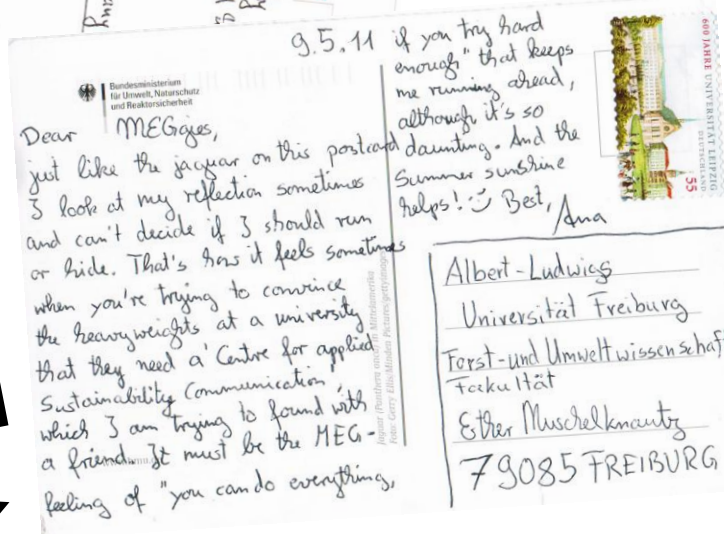 9.5.11
Bundesministerium
für Umwelt, Naturschutz
und Reaktorsicherheit
Dear MEGgies,
just like the jaguar on this postcard
I look at my reflection sometimes
and can't decide if I should run
or hide. That's how it feels sometimes
when you're trying to convince
the heavyweights at a university
that they need a 'Centre for applied
Sustainability Communication',
which I am trying to found with
a friend. It must be the MEG-
feeling of "you can do everything,
if you try hard
enough" that keeps
me running ahead,
although it's so
daunting. And the
Summer sunshine
helps! Best,
Ana
Jaguar (Panthera onca) in Mittelamerika
Foto: Gerry Ellis/Minden Pictures/gettyimages
600 JAHRE UNIVERSITÄT LEIPZIG
DEUTSCHLAND
55
Albert-Ludwigs
Universität Freiburg
Forst-und Umweltwissenschaf
Fakultät
Esther Muschelknautz
79085 FREIBURG